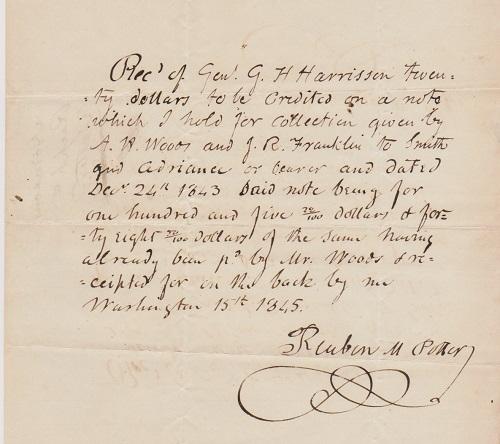 Rec'd of Genl. G. H Harrisson twen-
-ty dollars to be credited on a note
which I hold for collection given by
A. W. Woods and J. R. Franklin to Smith
and Adriance or bearer and dated
Decr. 24th 1843 Said note being for
one hundred and five /100 dollars & for-
-ty eight /100 dollars of the same having
already been pd by Mr. Woods & re-
-ceipted for on the back by me
Washington 15th 1845.
Reuben M Potter